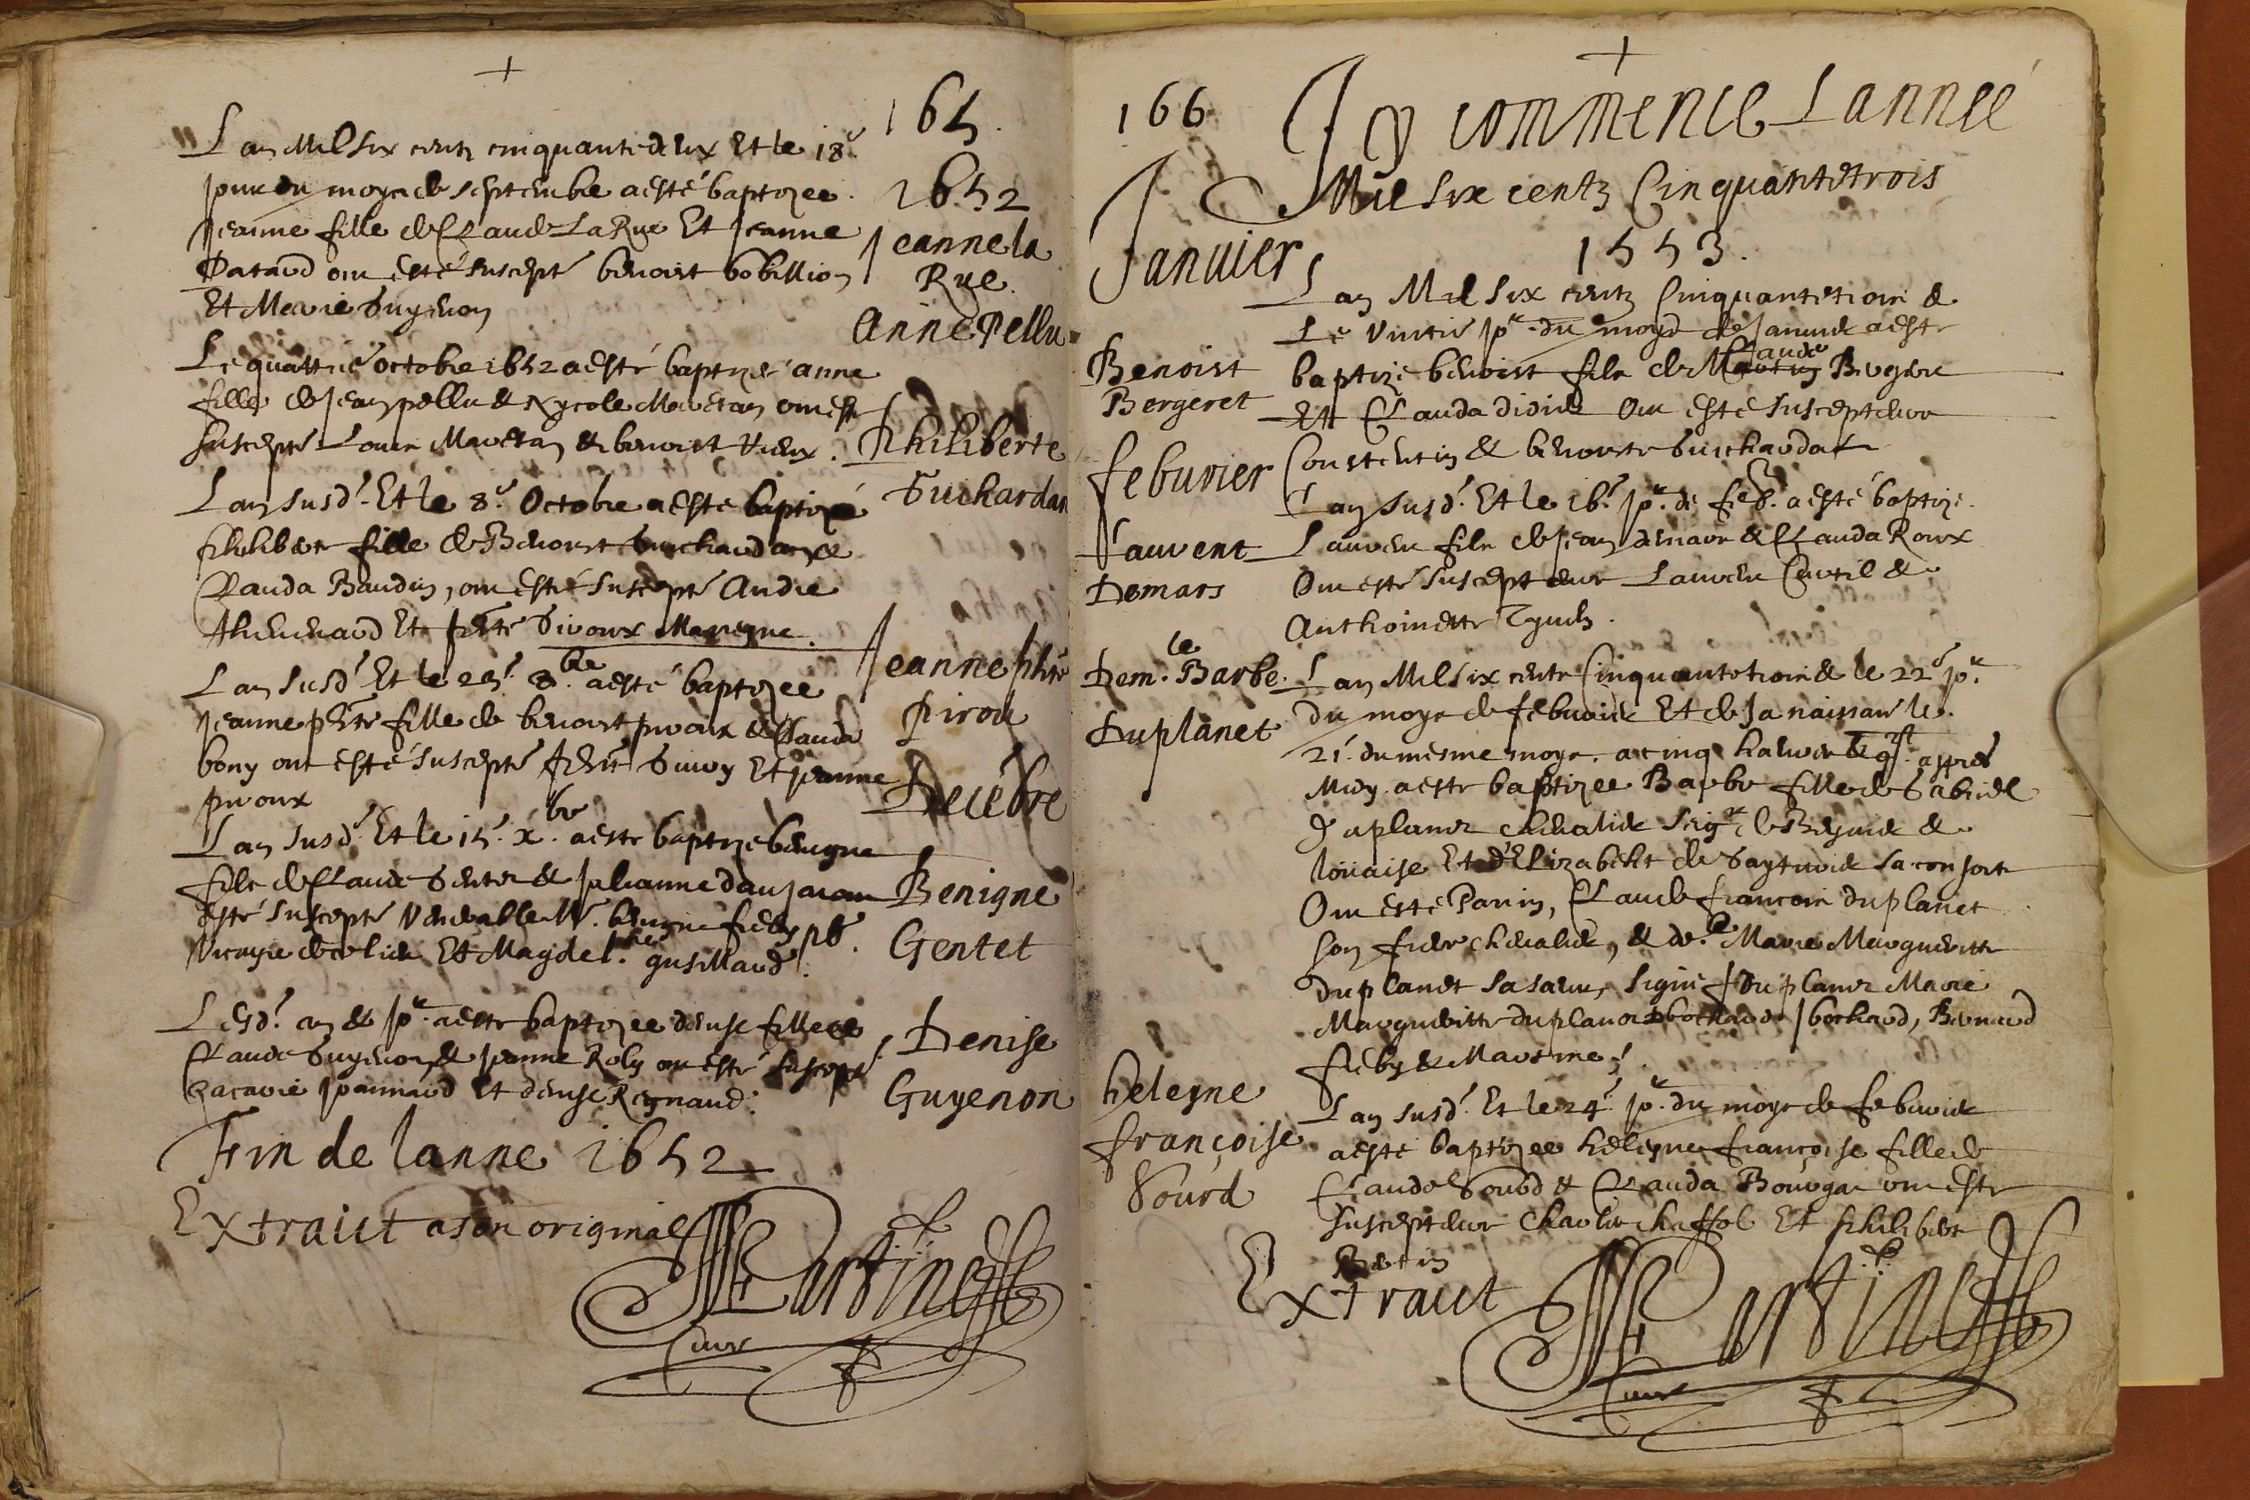 165.
1652
Lan Mil six centz cinquante deux Et le 18e
jour du moys de septembre a esté baptizee
Jeanne fille de Claude La Rue Et Jeanne
Pataud ont esté suscepte benoist bobillion
Et Marie Guyenon
Jeanne la
Rue.
Le quattrie octobre 1652 a esté baptizé anne
fille de Jean pellu & Nycole Mairetan ont este
suscepte Louis Mairetan & benoist Vieux.
Anne Pellu
Lan susd. Et le 8e Octobre a esté baptizé
philiberte fille de Benoist Guichardan &
Clauda Baudin, ont esté suscepte Andre
thevenard Et
Philiberte
Guichardan
Lan susd. Et le 25. 8.bre a esté baptizee
Jeanne phte fille de benoist piroux & Claude
bony ont esté suscepte Et jeanne
piroux
Jeanne phte
Pirou
Decebre
Lan susd. Et le 15. x.bre a este baptize benigne
fils de Claude Gentet & Julianne
esté suscepte Venerable Mre. benigne fieby pb.
Et Magdel.ne
Benigne
Gentet
Lesd. an & jr. a este baptizee denise fille de
Claude Guyenon & jeanne Roly ont esté suscepte
Et denise Regnaud.
Denise
Guyenon
Fin de lanne 1652
Extraict a son original
Martinet
Cure
166
Icy commence Lannee
Mil six centz Cinquantetrois
1553.
Januier
Lan Mil six centz Cinquantetrois &
Le jr. du moys de Januier a este
baptize benoist fils de Claude Bergeret
Et Clauda didier Ont este suscepteurs
Constentin & benoiste Guichardan
Benoist
Bergeret
feburier
Lan susd. Et le 16. jr. de feb. a esté baptize
Laurent fils de Jean demars & Clauda Roux
Ont esté suscepteurs Laurent Curtil &
Anthoinette
Laurent
Demars
Lan Mil six cents Cinquantetrois & le 22e jr.
du moys de feburier Et de sa naissance le
21. du mesme moys. a cinq heures & apres
Midy a este baptizee Barbe fille de Gabriel
Duplanet chevalier Seigr. de Beyuier &
loüaise Et d'Elizabeht de sa consorte
Ont este Parin, Claude francois duplanet
son frere chevalier, & de.lle Marie Marguerite
duplanet sa saeur, signe f Duplanet Marie
Marguerite duplanet bochard, Bernard
fieby & Martinet.
Dem.le Barbe
Duplanet
Lan susd. Et le 24. jr. du moys de feburier
a esté baptizee heleyne françoise fille de
Claude Gourd & Clauda Bourgac ont este
suscepteurs Charles chaffol Et philiberte
heleyne
françoise
Gourd
Extraict
Martinet
Cure